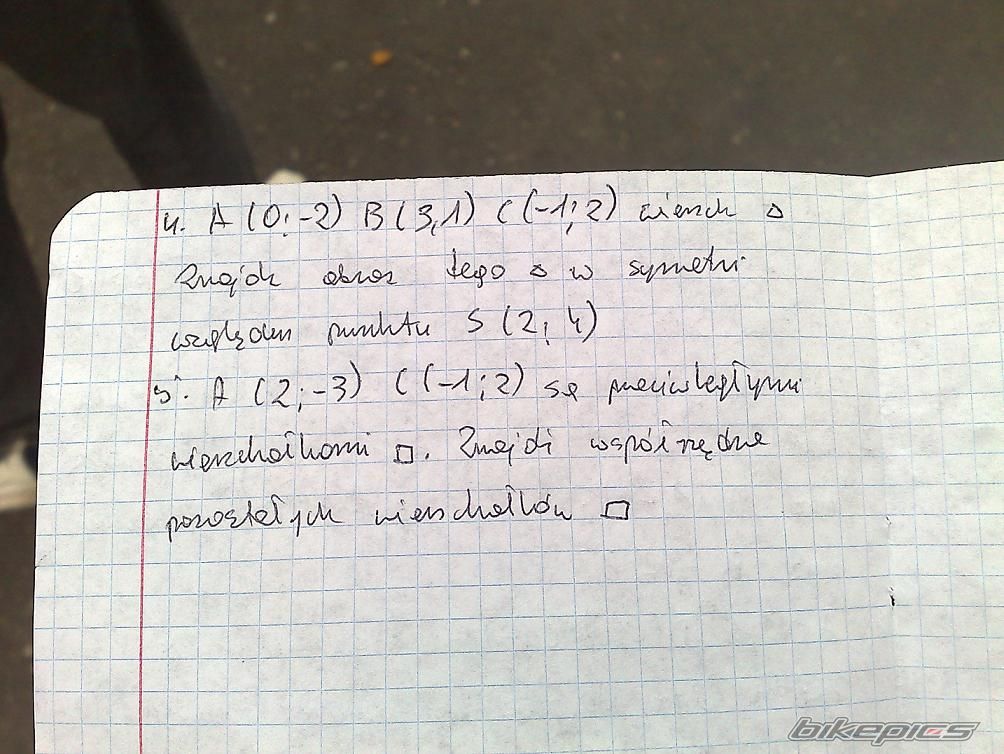 4. A (0;-2) B (3,1) C (-1;2) wierzch △
Znajdź obraz tego △ w symetri
względem punktu S (2; 4)
5. A (2;-3) C (-1;2) są przeciwległymi
wierzchołkami □. Znajdź współrzędne
pozostałych wierzchołków □
bikepics